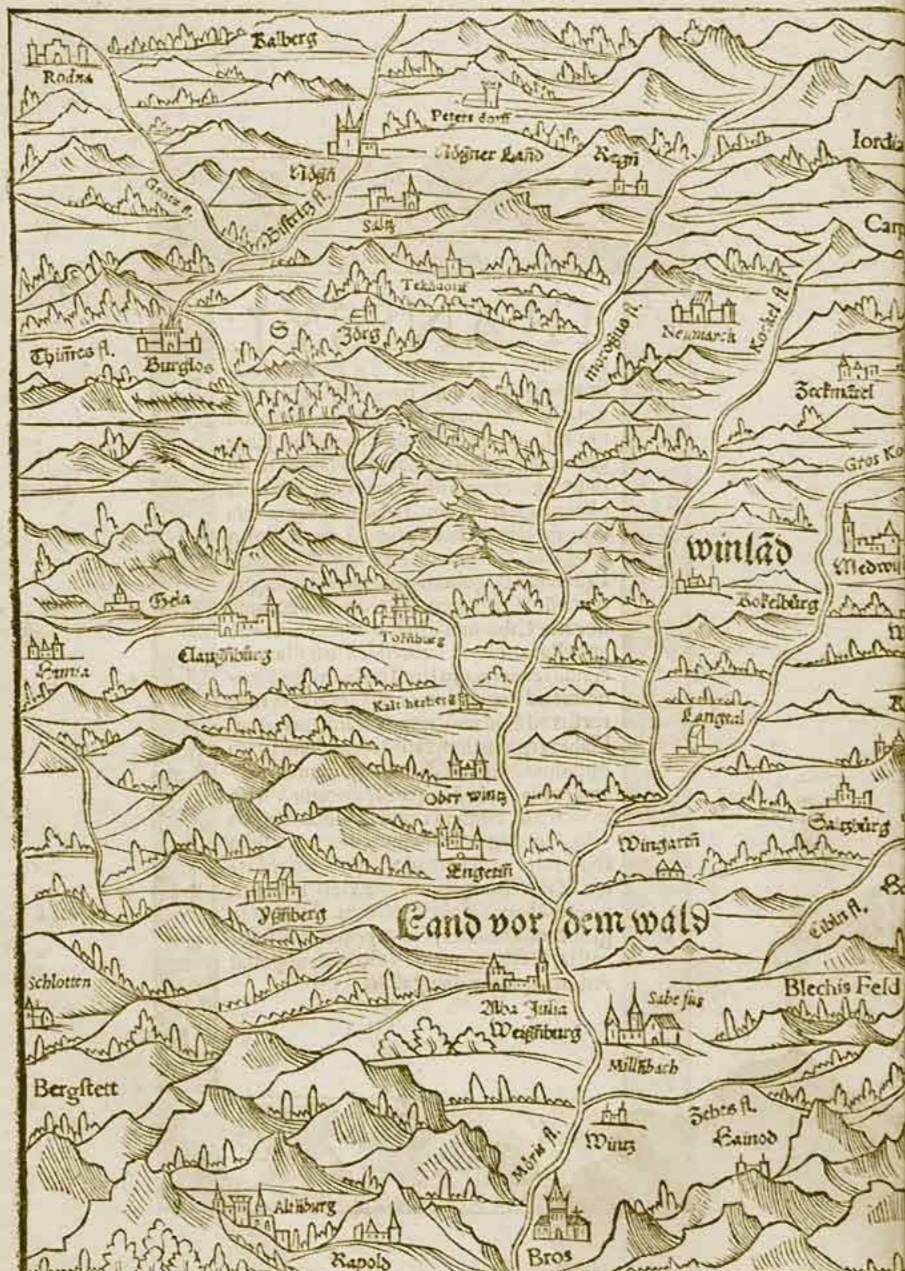 Balberg
Rodna
Peters dorff
Nösner Land
Regn
Nösn
Saltz
Bistritz fl.
S Jörg
Thimes fl.
Burglos
Morosius fl.
Neumarck
Kockel fl.
Zeckmarel
Gros Ko
winlãd
Kokelburg
Medwi
Gela
Tornburg
Clausnburg
Kalt herberg
Langtal
Ober wintz
Saltzburg
Wingartn
Engetin
Ysnberg
Land vor dem wald
Cibin fl.
Schlotten
Blechis Feld
Alba Julia
Weissnburg
Sabesus
Millnbach
Bergstett
Zebes fl.
Wintz
Hainod
Möris fl.
Altnburg
Rapold
Bros